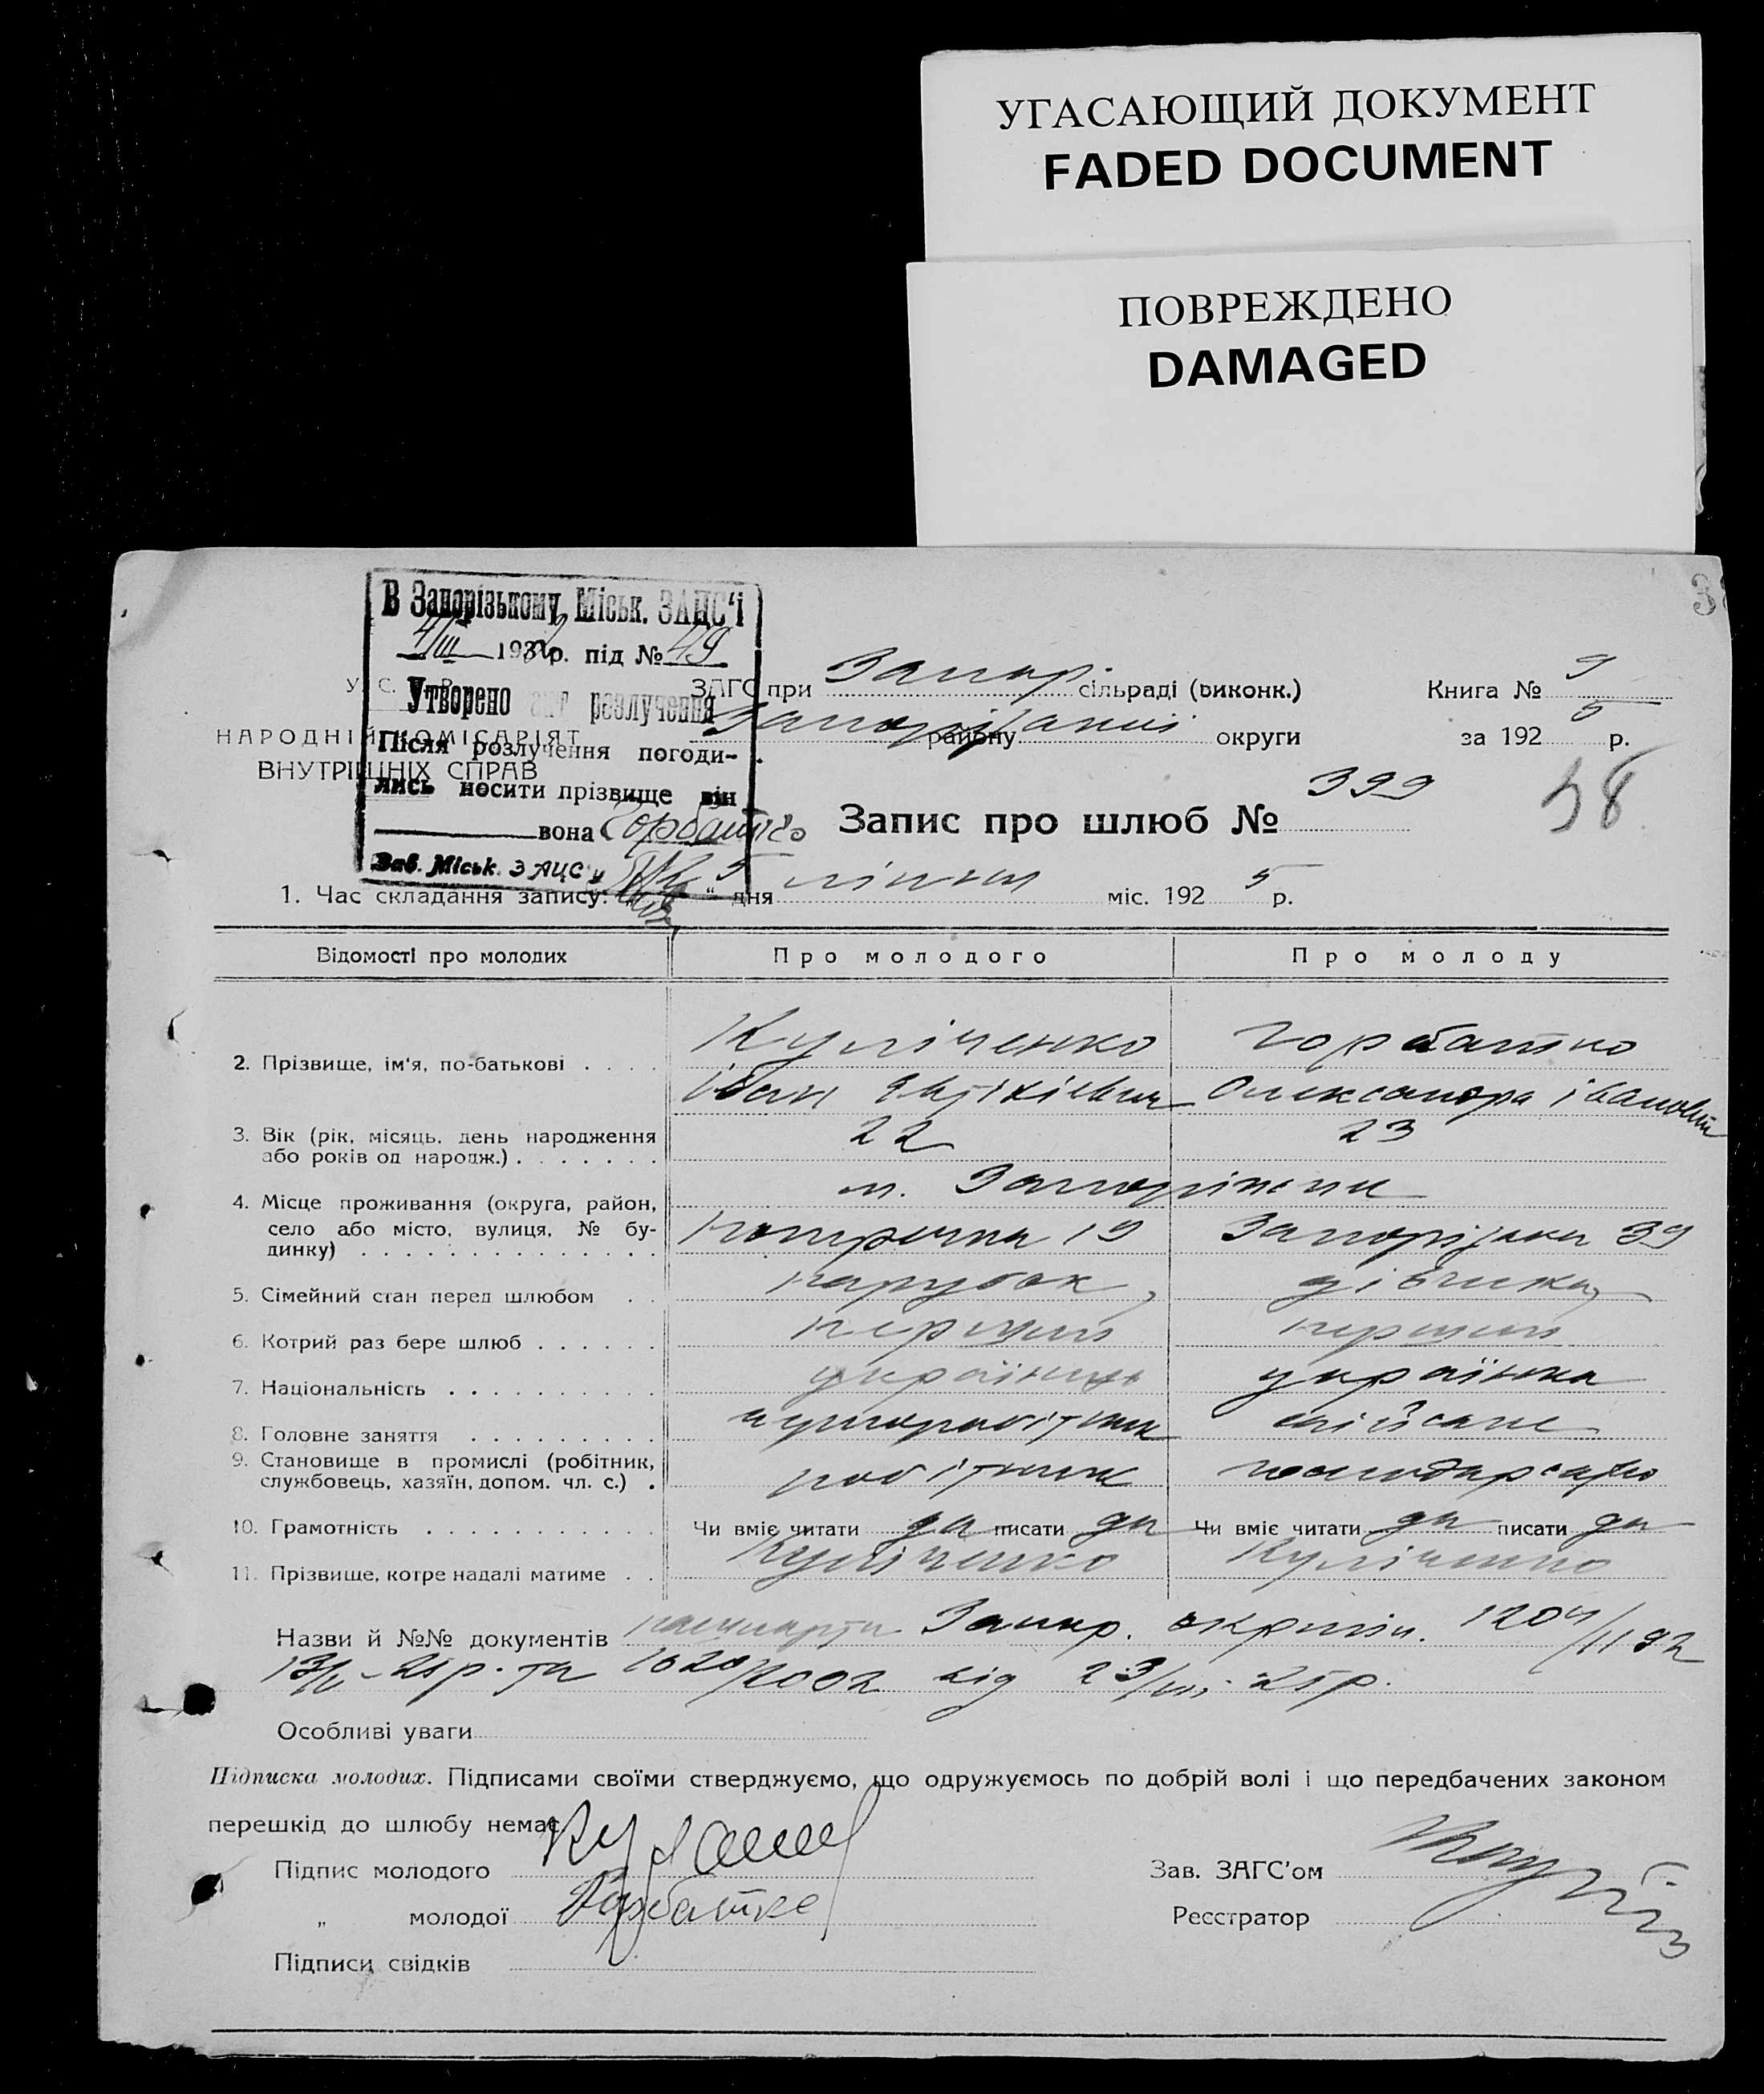 УГАСАЮЩИЙ ДОКУМЕНТ
FADED DOCUMENT
ПОВРЕЖДЕНО
DAMAGED
В Запорізькому Міськ. ЗАЦС'і
4/III 1932р. під № 49
Утворено акт розлучення
Після розлучення погоди-
лись носити прізвище він
вона Горбатко
Зав. Міськ. ЗАЦС'у
У. С. Р. Р.
НАРОДНІЙ КОМІСАРІЯТ
ВНУТРІШНІХ СПРАВ
ЗАГС при Запор. сільраді (виконк.)
району Запорізької округи
Книга № 9
за 192 5 р.
Запис про шлюб № 399
58
1. Час складання запису: „ 5 “ дня липня міс. 192 5 р.
Відомості про молодих Про молодого Про молоду
2. Прізвище, ім'я, по-батькові Куліченко Горбатко
Іван Олександра Івановн
3. Вік (рік, місяць, день народження 22 23
або років од народж.)
4. Місце проживання (округа, район, м. Запоріжжя
село або місто, вулиця, № бу- 19 Запорізька 39
динку)
5. Сімейний стан перед шлюбом парубок дівчина
6. Котрий раз бере шлюб перший перший
7. Національність українець українка
8. Головне заняття
9. Становище в промислі (робітник, робітник
службовець, хазяїн, допом. чл. с.)
10. Грамотність Чи вміє читати да писати да Чи вміє читати да писати да
11. Прізвище, котре надалі матиме Куліченко Куліченко
Назви й №№ документів Запор. 1204/1192
та 1620/2002 від 23/VII 25 р.
Особливі уваги
Підписка молодих. Підписами своїми стверджуємо, що одружуємось по добрій волі і що передбачених законом
перешкід до шлюбу немає
Підпис молодого
„ молодої Горбатко
Підписи свідків
Зав. ЗАГС'ом
Реєстратор